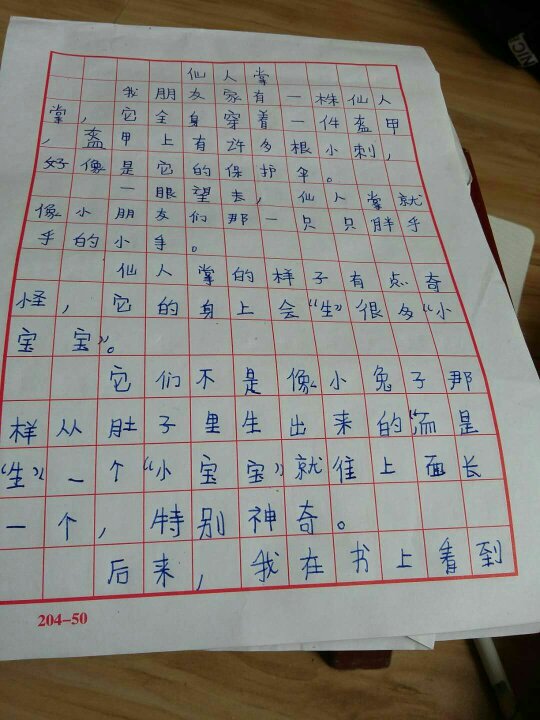 仙人掌
我朋友家有一株仙人
掌，它全身穿着一件盔甲
，盔甲上有许多根小刺，
好像是它的保护伞。
一眼望去，仙人掌就
像小朋友们那一只只胖乎
乎的小手。
仙人掌的样子有点奇
怪，它的身上会“生”很多“小
宝宝”。
它们不是像小兔子那
样从肚子里生出来的，而是
“生”一个“小宝宝”就往上面长
一个，特别神奇。
后来，我在书上看到
204-50